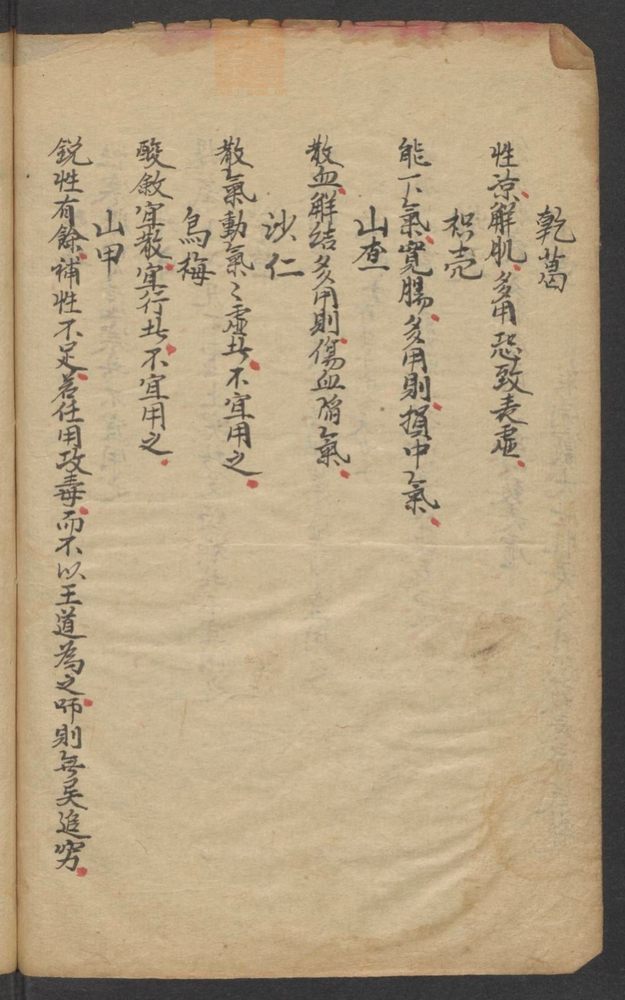 乾葛
性凉解肌多用恐致表虛
枳売
能下氣寬腸多用則損中氣
山查
散血解结多用則傷血陷氣
沙仁
散氣動氣〻虛者不宜用之
烏梅
酸斂宜散宜行者不宜用之
山甲
銳性有餘補性不足若任用攻毒而不以王道為之師則無足追窮